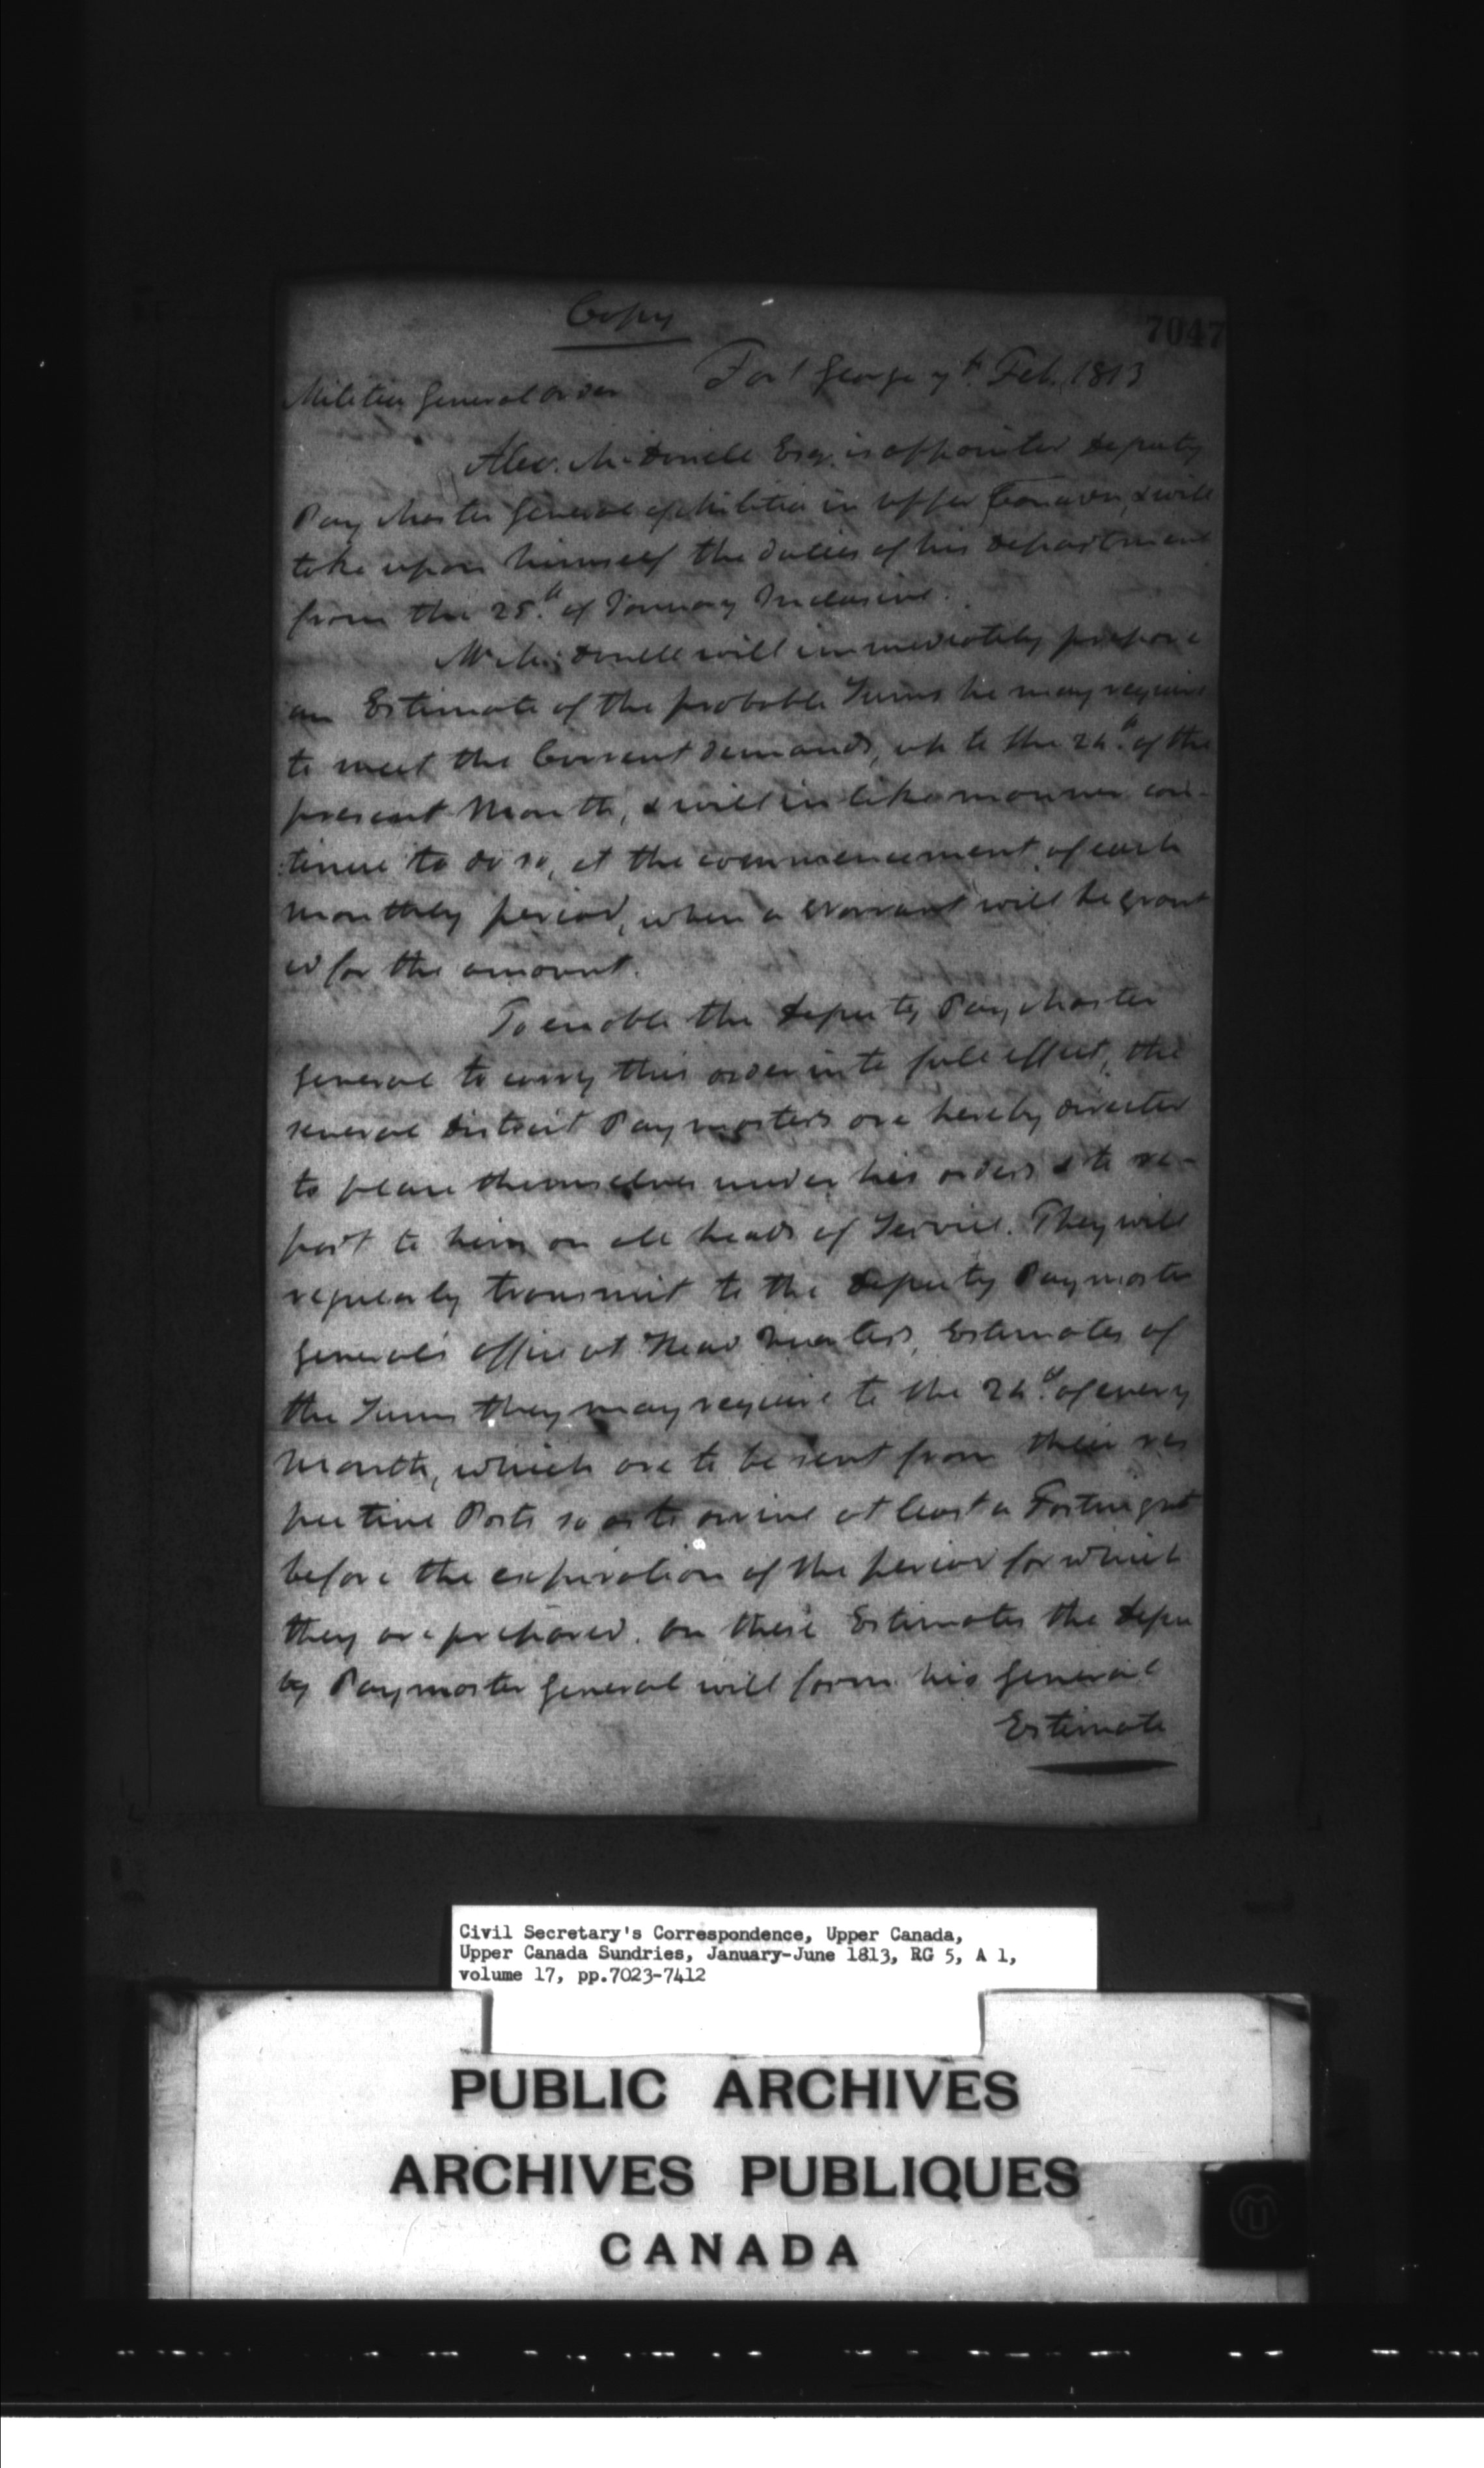 Copy
7047
Militia General Order Fort George 7th. Feb. 1813
Alex. McDonell Esqr. is appointed Deputy
Pay Master General of Militia in Upper Canada, & will
take upon himself the duties of his department
from the 25th. of January Inclusive.
Mr McDonell will immediately prepare
an Estimate of the probable Sums he may require
to meet the Current demands, up to the 24th. of the
present Month, & will in like manner con-
:tinue to do so, at the commencement of each
monthly period, when a warrant will be grant
ed for the amount.
To enable the Deputy Pay Master
General to carry this order into full effect, the
several District Paymasters are hereby directed
to place themselves under his orders & to re-
port to him on all heads of Service. They will
regularly transmit to the Deputy Paymaster
General's office at Head Quarters, Estimates of
the Sums they may require to the 24th. of every
Month, which are to be sent from their res
pective Posts so as to arrive at least a Fortnight
before the expiration of the period for which
they are prepared. On these Estimates the Depu
ty Paymaster General will form his General
Estimate
Civil Secretary's Correspondence, Upper Canada,
Upper Canada Sundries, January-June 1813, RG 5, A 1,
volume 17, pp.7023-7412
PUBLIC ARCHIVES
ARCHIVES PUBLIQUES
CANADA